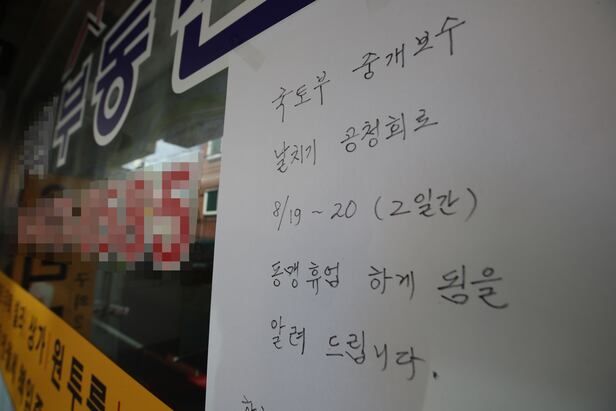 부동산
국토부 중개보수
날치기 공청회로
8/19 ~ 20 (2일간)
동맹휴업 하게 됨을
알려 드립니다.
상가 원투룸